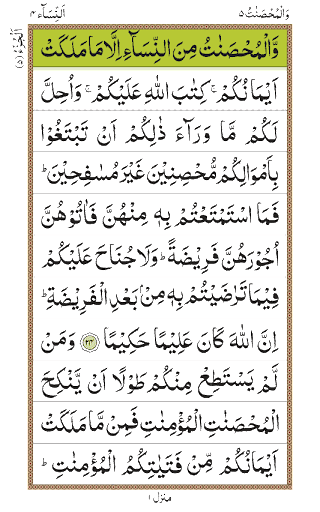 وَالْمُحْصَنٰتُ ٥
اَلنِّسَآء ٤
اَلْجُزْءُ (٥)
وَّالْمُحْصَنٰتُ مِنَ النِّسَآءِ اِلَّا مَا مَلَكَتْ
اَيْمَانُكُمْ ۚ كِتٰبَ اللّٰهِ عَلَيْكُمْ ۚ وَاُحِلَّ
لَكُمْ مَّا وَرَآءَ ذٰلِكُمْ اَنْ تَبْتَغُوْا
بِاَمْوَالِكُمْ مُّحْصِنِيْنَ غَيْرَ مُسٰفِحِيْنَ ؕ
فَمَا اسْتَمْتَعْتُمْ بِهٖ مِنْهُنَّ فَاٰتُوْهُنَّ
اُجُوْرَهُنَّ فَرِيْضَةً ؕ وَلَا جُنَاحَ عَلَيْكُمْ
فِيْمَا تَرٰضَيْتُمْ بِهٖ مِنْۢ بَعْدِ الْفَرِيْضَةِ ؕ
اِنَّ اللّٰهَ كَانَ عَلِيْمًا حَكِيْمًا ﴿۲۴﴾ وَمَنْ
لَّمْ يَسْتَطِعْ مِنْكُمْ طَوْلًا اَنْ يَّنْكِحَ
الْمُحْصَنٰتِ الْمُؤْمِنٰتِ فَمِنْ مَّا مَلَكَتْ
اَيْمَانُكُمْ مِّنْ فَتَيٰتِكُمُ الْمُؤْمِنٰتِ ؕ
منزل ١